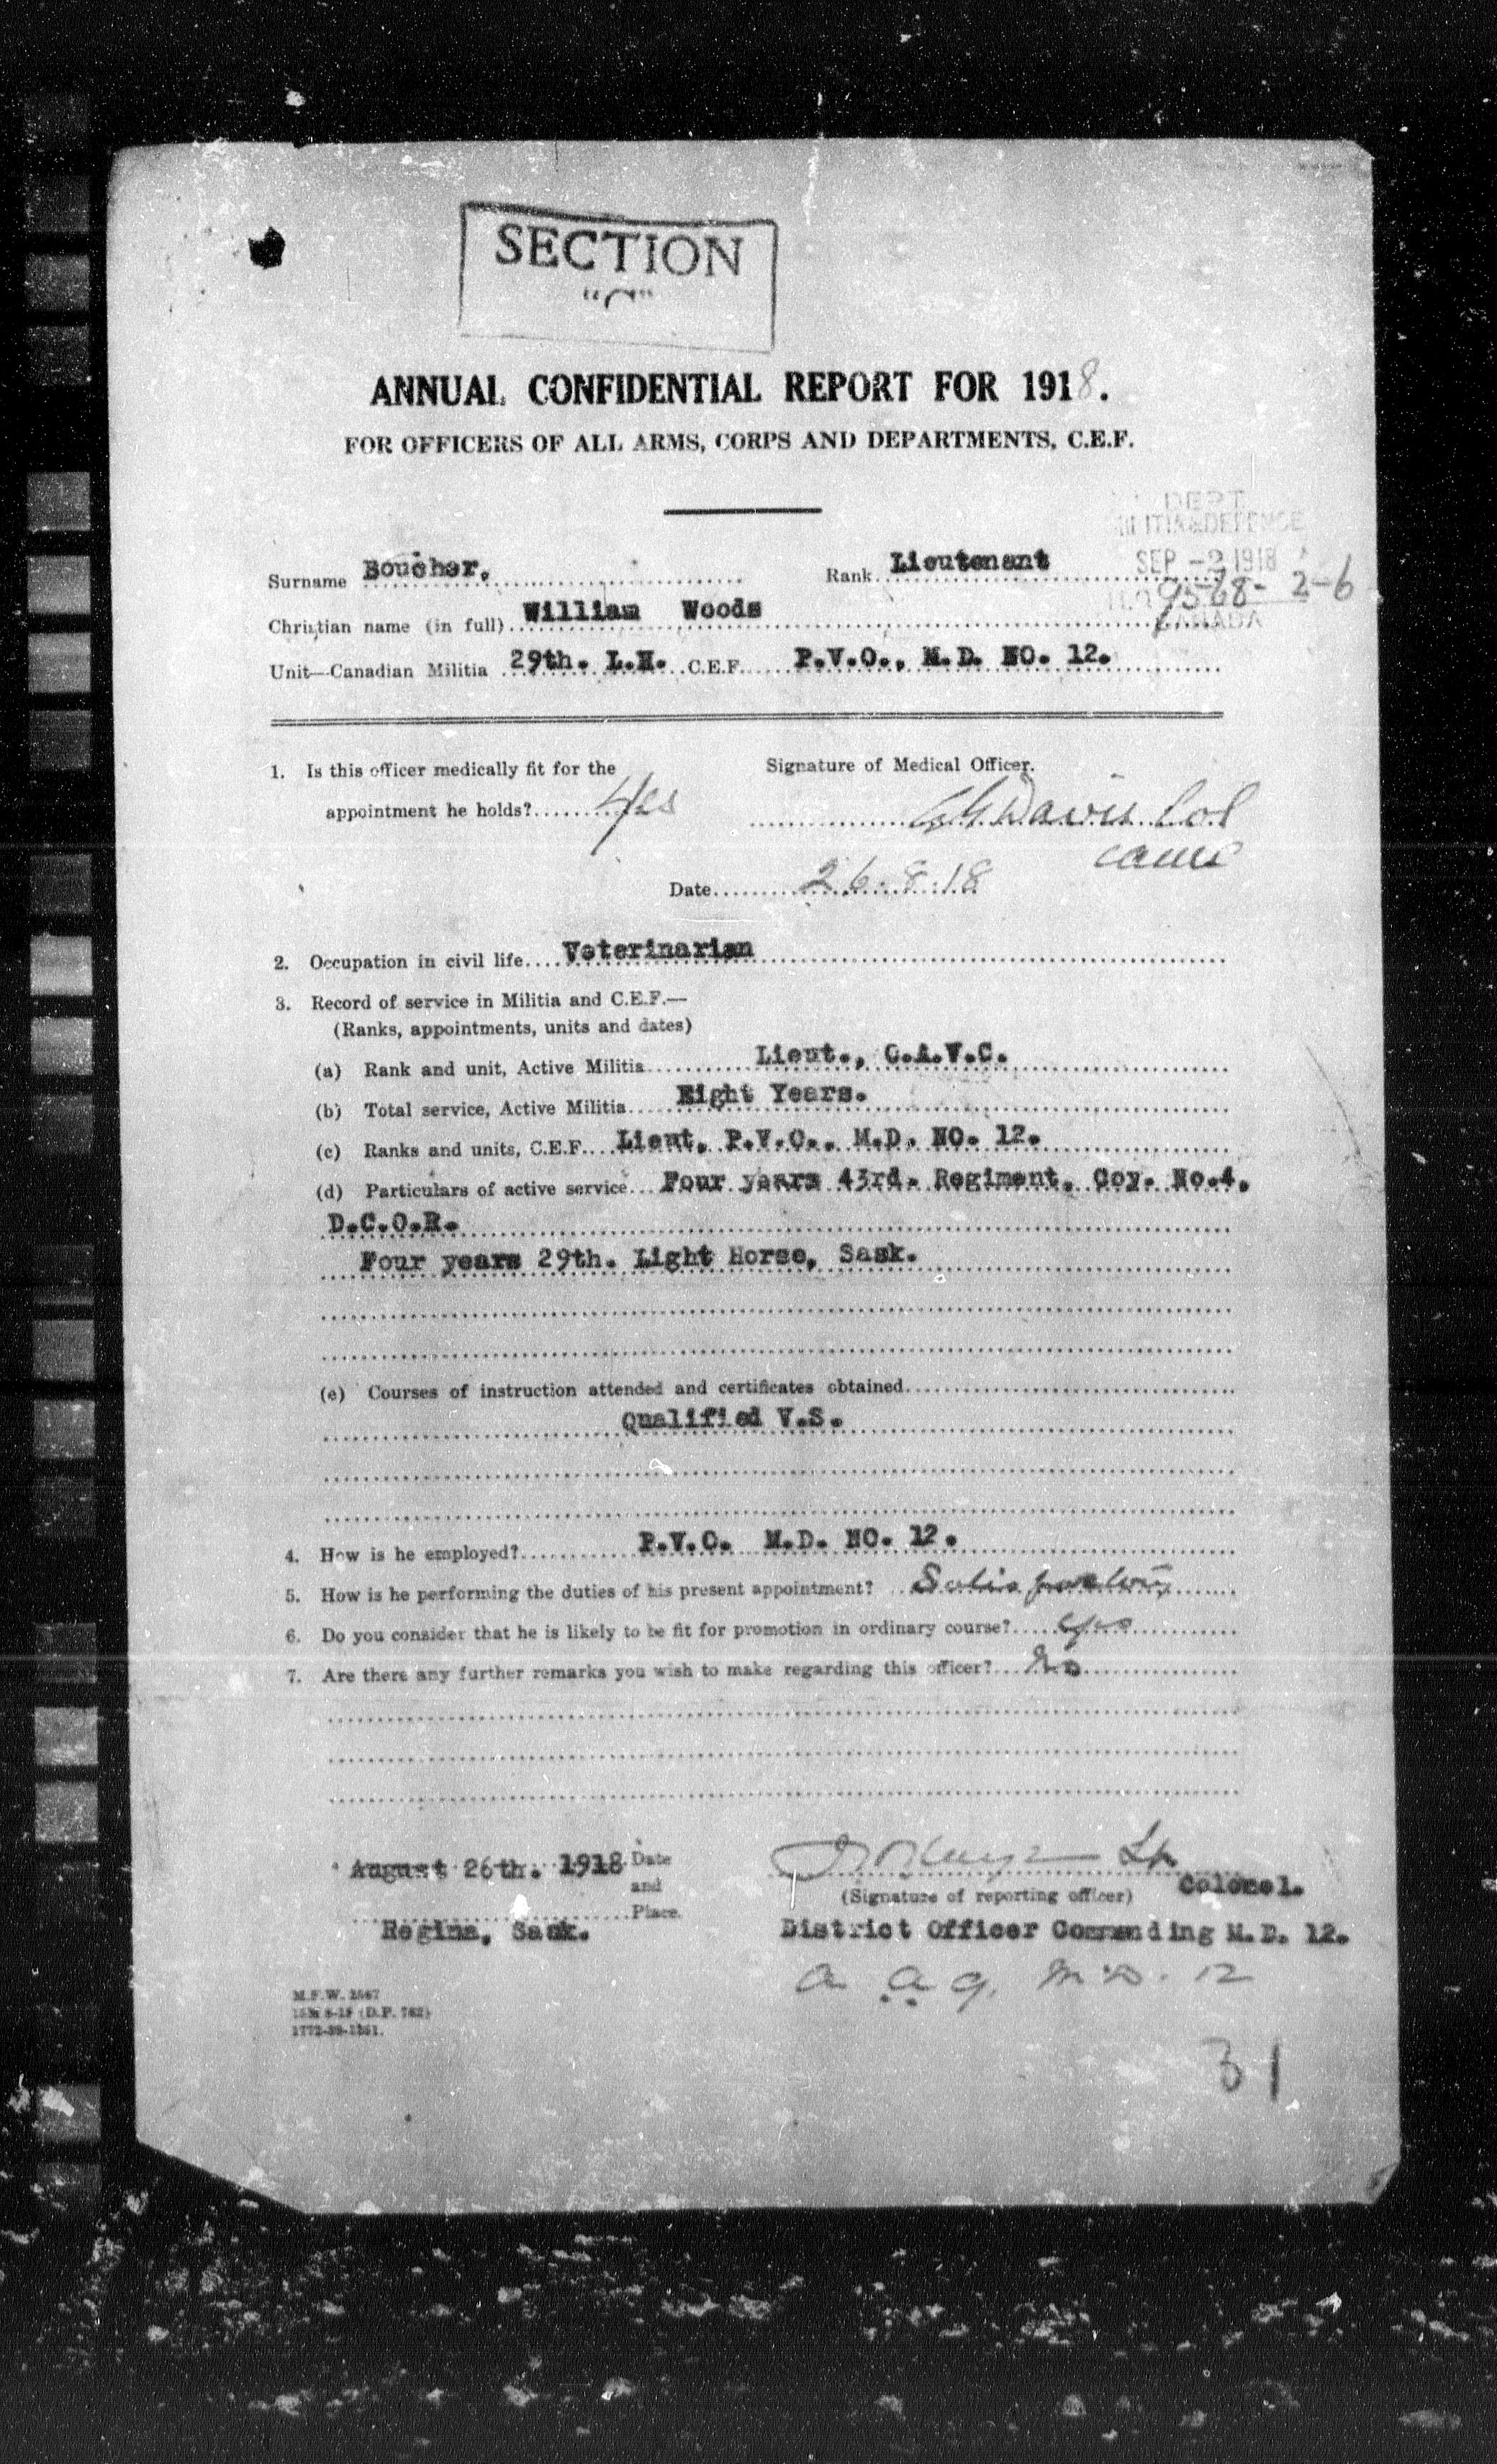 SECTION
"C"
ANNUAL CONFIDENTIAL REPORT FOR 1918.
FOR OFFICERS OF ALL ARMS, CORPS AND DEPARTMENTS, C.E.F.
DEPT.
MILITIA & DEFENCE
SEP -2 1918
H.Q. 9568-2-6
CANADA
Surname Boucher. Rank Lieutenant
Christian name (in full) William Woods
Unit—Canadian Militia 29th. L.H. C.E.F. P.V.O., M.D. NO. 12.
1. Is this officer medically fit for the
appointment he holds? Yes
Signature of Medical Officer.
Davis Col
CAMC
Date 26.8.18
2. Occupation in civil life Veterinarian
3. Record of service in Militia and C.E.F.—
(Ranks, appointments, units and dates)
(a) Rank and unit, Active Militia Lieut., C.A.V.C.
(b) Total service, Active Militia Eight Years.
(c) Ranks and units, C.E.F. Lieut, P.V.O., M.D. NO. 12.
(d) Particulars of active service Four years 43rd. Regiment, Coy. No.4,
D.C.O.R.
Four years 29th. Light Horse, Sask.
(e) Courses of instruction attended and certificates obtained
Qualified V.S.
4. How is he employed? P.V.O. M.D. NO. 12.
5. How is he performing the duties of his present appointment? Satisfactory
6. Do you consider that he is likely to be fit for promotion in ordinary course? Yes
7. Are there any further remarks you wish to make regarding this officer? No
August 26th. 1918 Date
and
Place.
Regina, Sask.
Lt.
(Signature of reporting officer) Colonel.
District Officer Commanding M.D. 12.
A.A.G. M.D. 12
M.F.W. 2567
1772-39-1351.
31